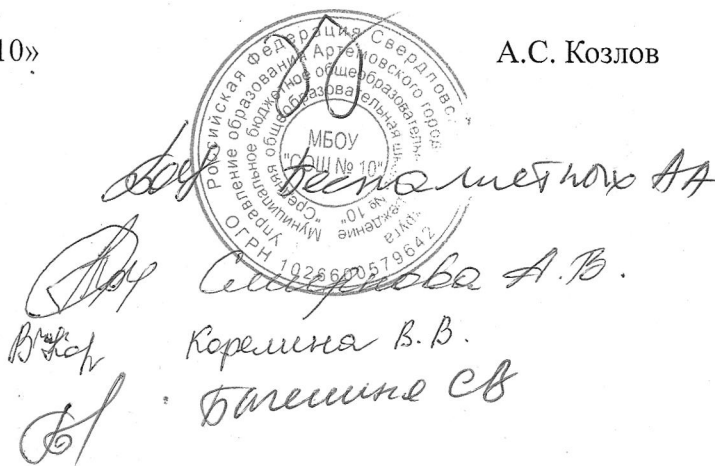 10» А.С. Козлов
Российская Федерация Свердловс
Управление образования Артемовского город
Муниципальное бюджетное общеобразовательн
"Средняя общеобразовательная
№ 10"
МБОУ
"СОШ № 10"
ОГРН 1026600579642
Беспаметных АА
Смирнова А.В.
Корелина В.В.
СВ